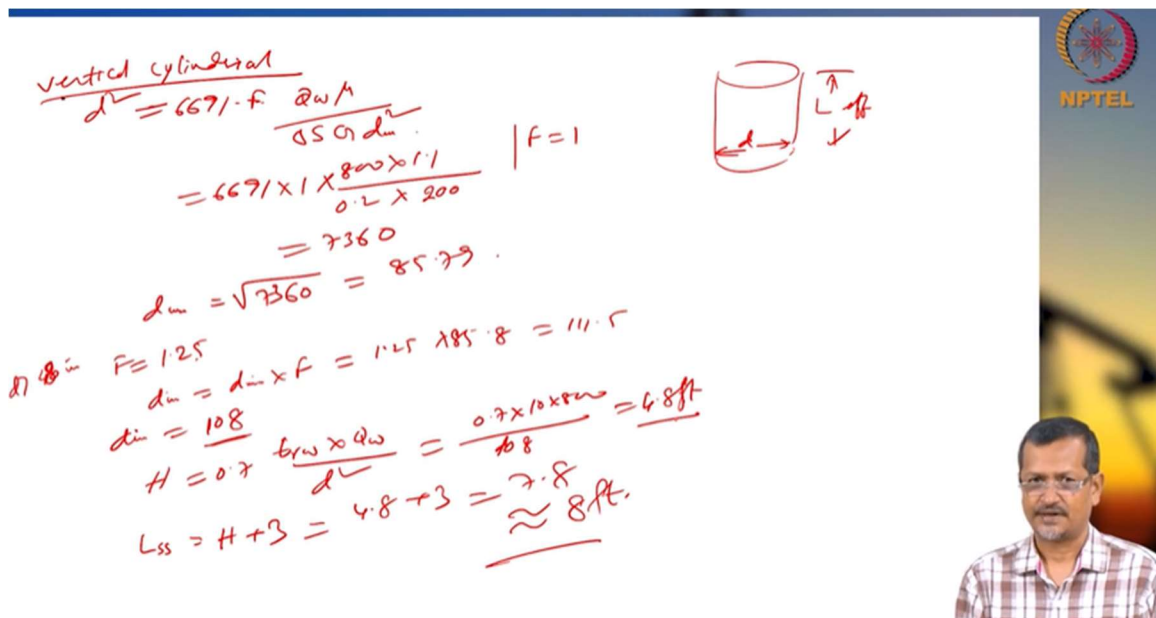 vertical cylindrical
d² = 6691·F Qw μ / ΔSG dm²
= 6691 × 1 × 800 × 1.1 / 0.2 × 200 | F = 1
= 7360
dm = √7360 = 85.79.
F = 1.25
dm = dm × F = 1.25 × 85.8 = 111.5
dm = 108
H = 0.7 trw × Qw / d² = 0.7 × 10 × 800 / 108 = 4.8ft
Lss = H + 3 = 4.8 + 3 = 7.8
≈ 8ft.
d
L eff
NPTEL